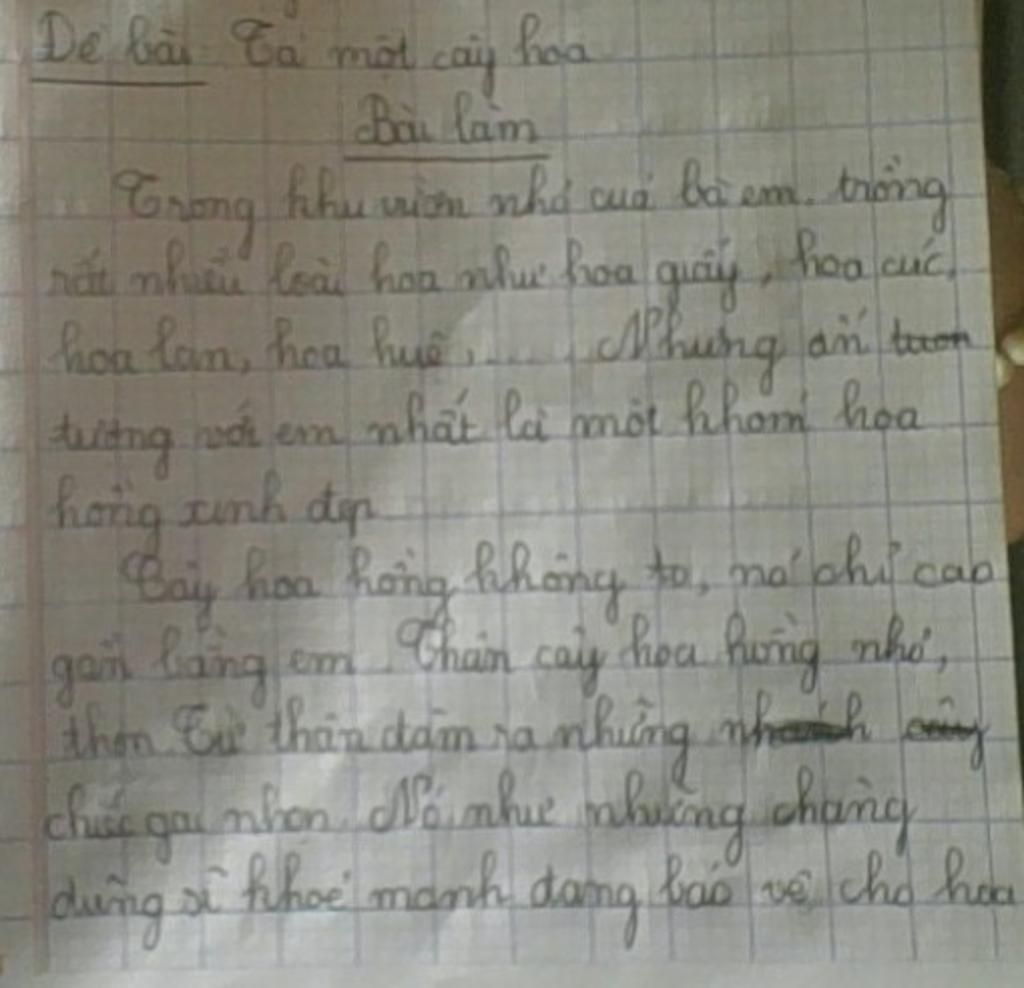 Đề bài Tả một cây hoa
Bài làm
Trong khu vườn nhỏ của bà em. trồng
rất nhiều loài hoa như hoa giấy, hoa cúc,
hoa lan, hoa huệ,.... Nhưng ấn
tượng với em nhất là một khóm hoa
hồng xinh đẹp
Cây hoa hồng không to, nó chỉ cao
gần bằng em. Thân cây hoa hồng nhỏ,
thon Từ thân đâm ra những
chiếc gai nhọn. Nó như những chàng
dũng sĩ khoẻ mạnh đang bảo vệ cho hoa